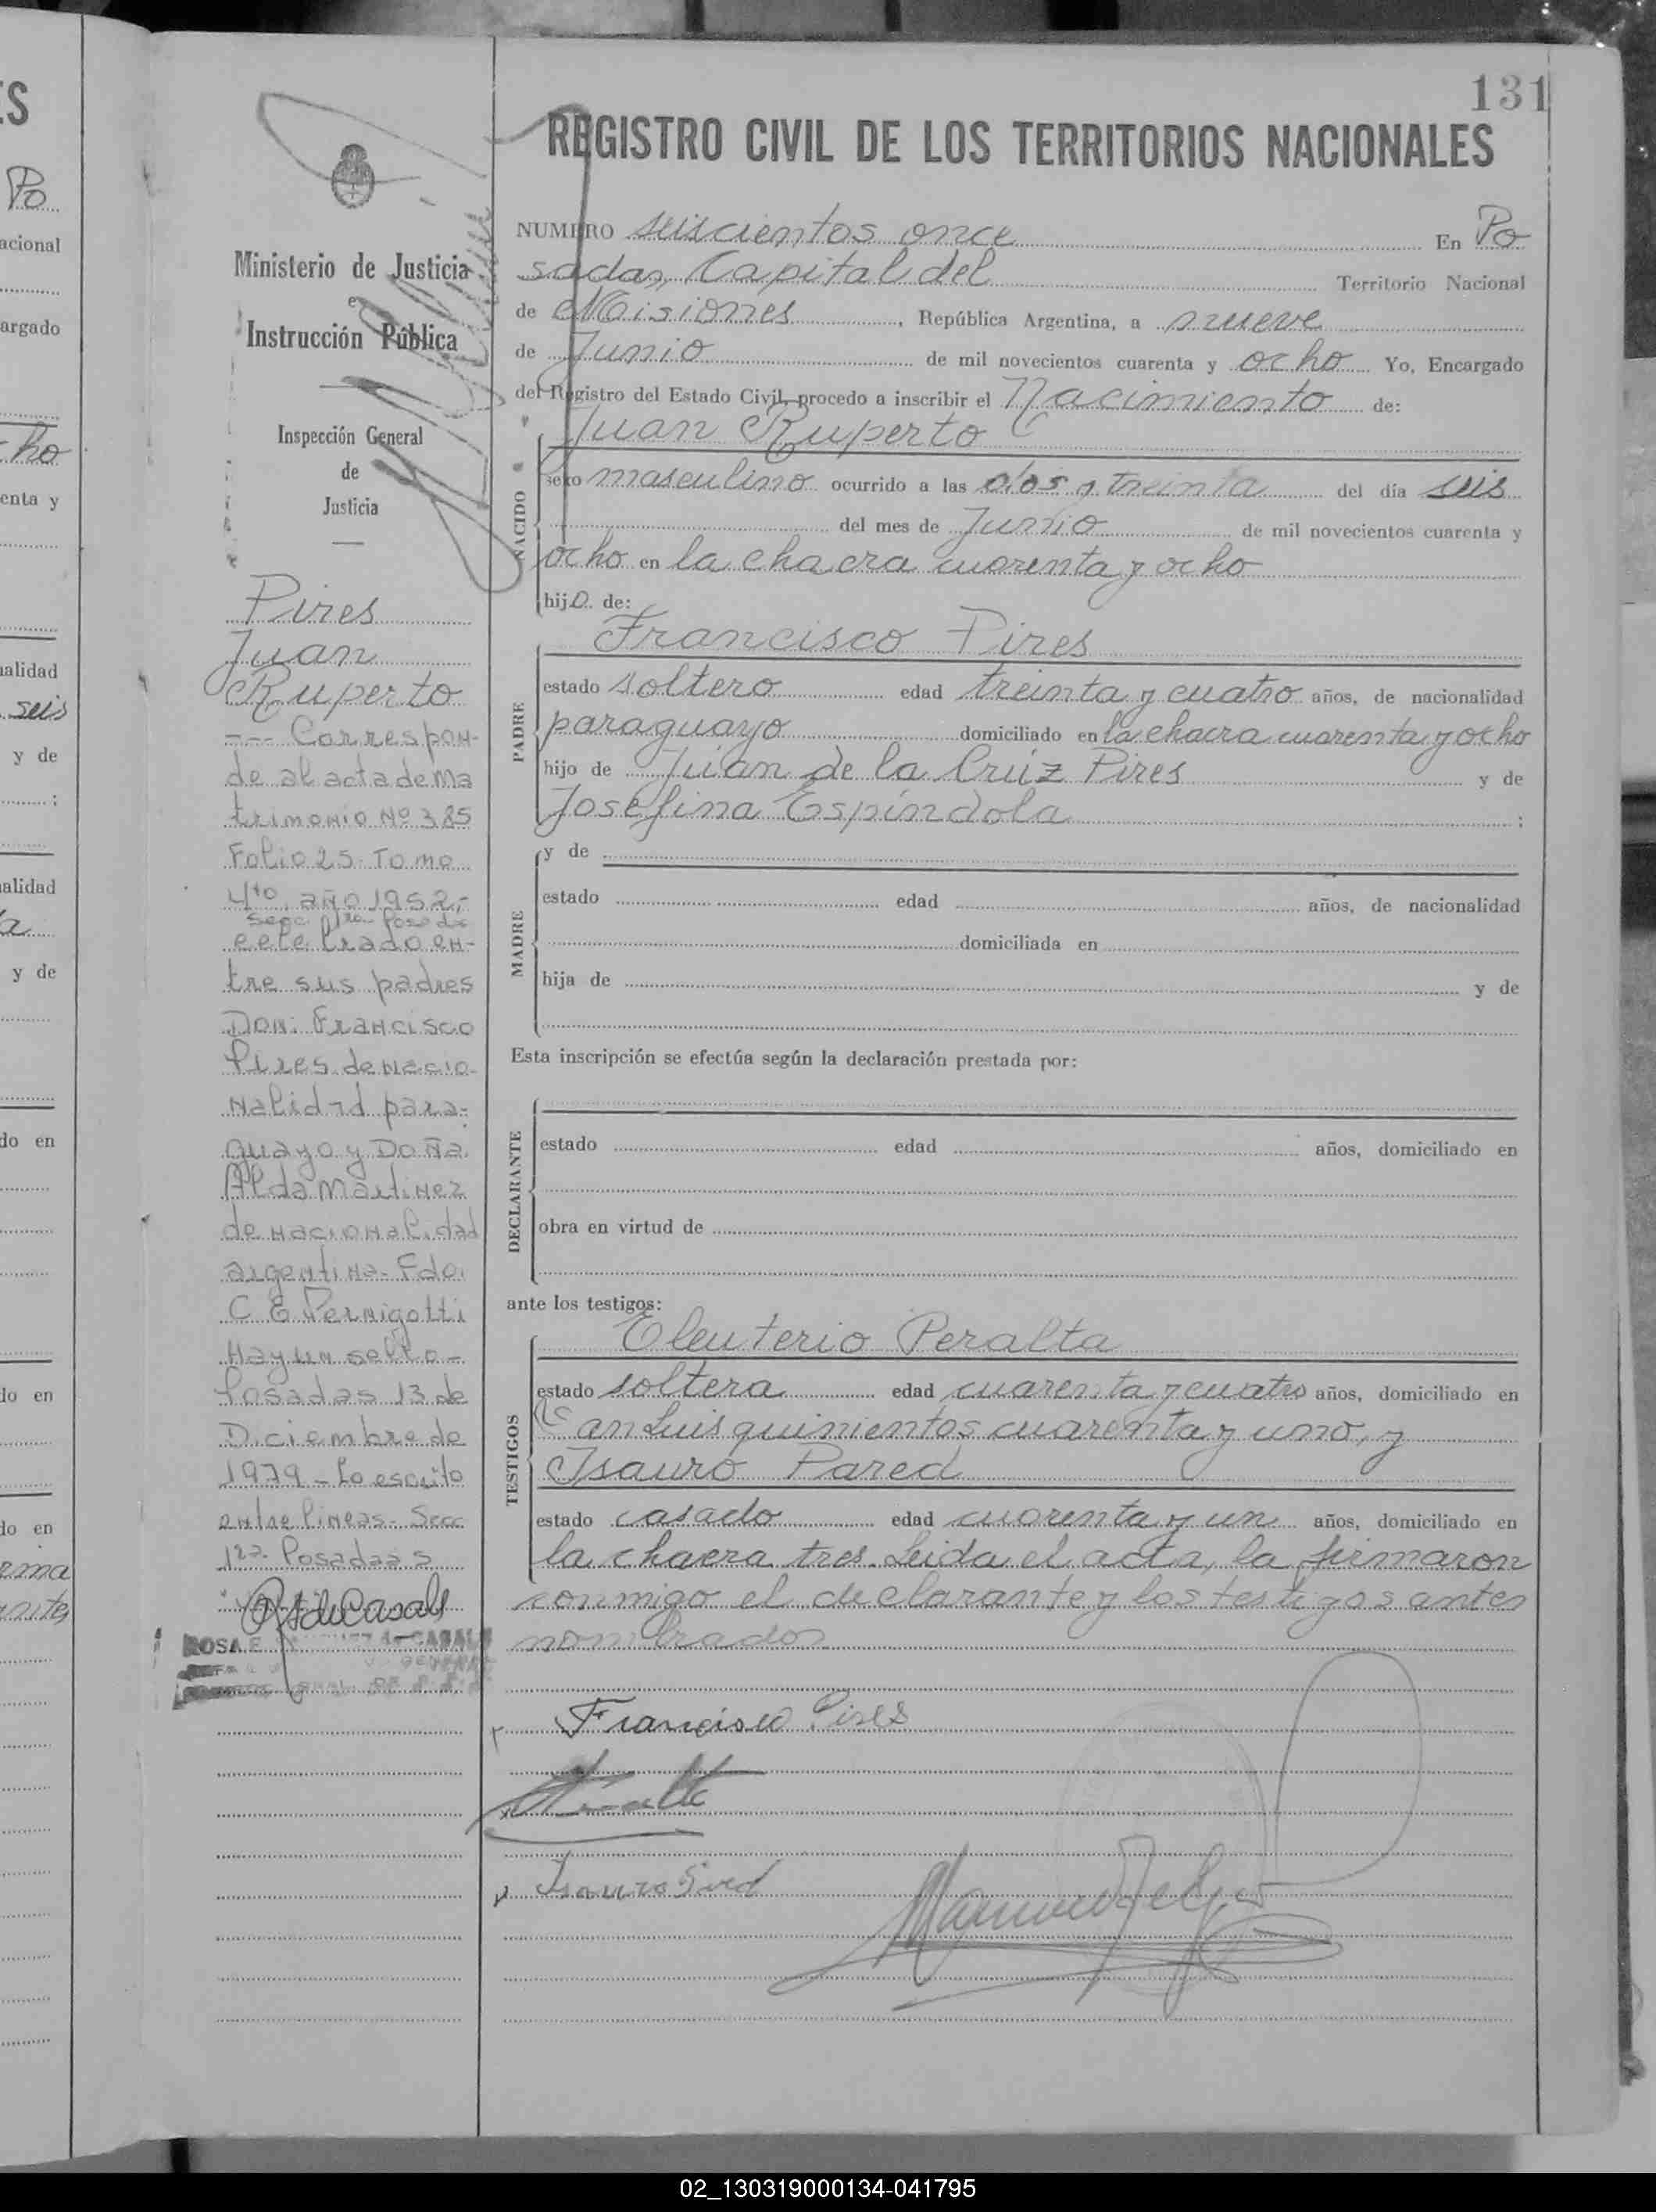 131
REGISTRO CIVIL DE LOS TERRITORIOS NACIONALES
NUMERO seiscientos once En Po
sadas, Capital del Territorio Nacional
de Misiones, República Argentina, a nueve
de Junio de mil novecientos cuarenta y ocho Yo, Encargado
del Registro del Estado Civil, procedo a inscribir el Nacimiento de:
NACIDO
Juan Ruperto
sexo masculino ocurrido a las dos y treinta del día seis
del mes de Junio de mil novecientos cuarenta y
ocho en la chacra cuarenta y ocho
hijo de:
PADRE
Francisco Pires
estado soltero edad treinta y cuatro años, de nacionalidad
paraguayo domiciliado en la chacra cuarenta y ocho
hijo de Juan de la Cruz Pires y de
Josefina Espíndola ;
MADRE
y de
estado edad años, de nacionalidad
domiciliada en
hija de y de
Esta inscripción se efectúa según la declaración prestada por:
DECLARANTE
estado edad años, domiciliado en
obra en virtud de
ante los testigos:
TESTIGOS
Eleuterio Peralta
estado soltera edad cuarenta y cuatro años, domiciliado en
San Luis quinientos cuarenta y uno, y
Isauro Pared
estado casado edad cuarenta y un años, domiciliado en
la chacra tres. Leida el acta, la firmaron
conmigo el declarante y los testigos antes
nombrados
Francisco Pires
Ministerio de Justicia
e
Instrucción Pública
Inspección General
de
Justicia
Pires
Juan
Ruperto
--- Correspon-
de al acta de Ma
trimonio Nº 385
Folio 25 Tomo
4to año 1952,-
Secc 1ra Posadas
celebrado en-
tre sus padres
Don: Francisco
Pires de nacio-
nalidad para-
guayo y Doña
Alda Martinez
de nacionalidad
argentina- Fdo.
C E Pernigotti
Hay un sello-
Posadas 13 de
Diciembre de
1979 - Lo escrito
entre lineas- Secc
1ra. Posadas
ROSA E. CASALS
ES
Po
acional
argado
cho
enta y
nalidad
seis
y de
alidad
a
y de
do en
do en
do en
02_130319000134-041795